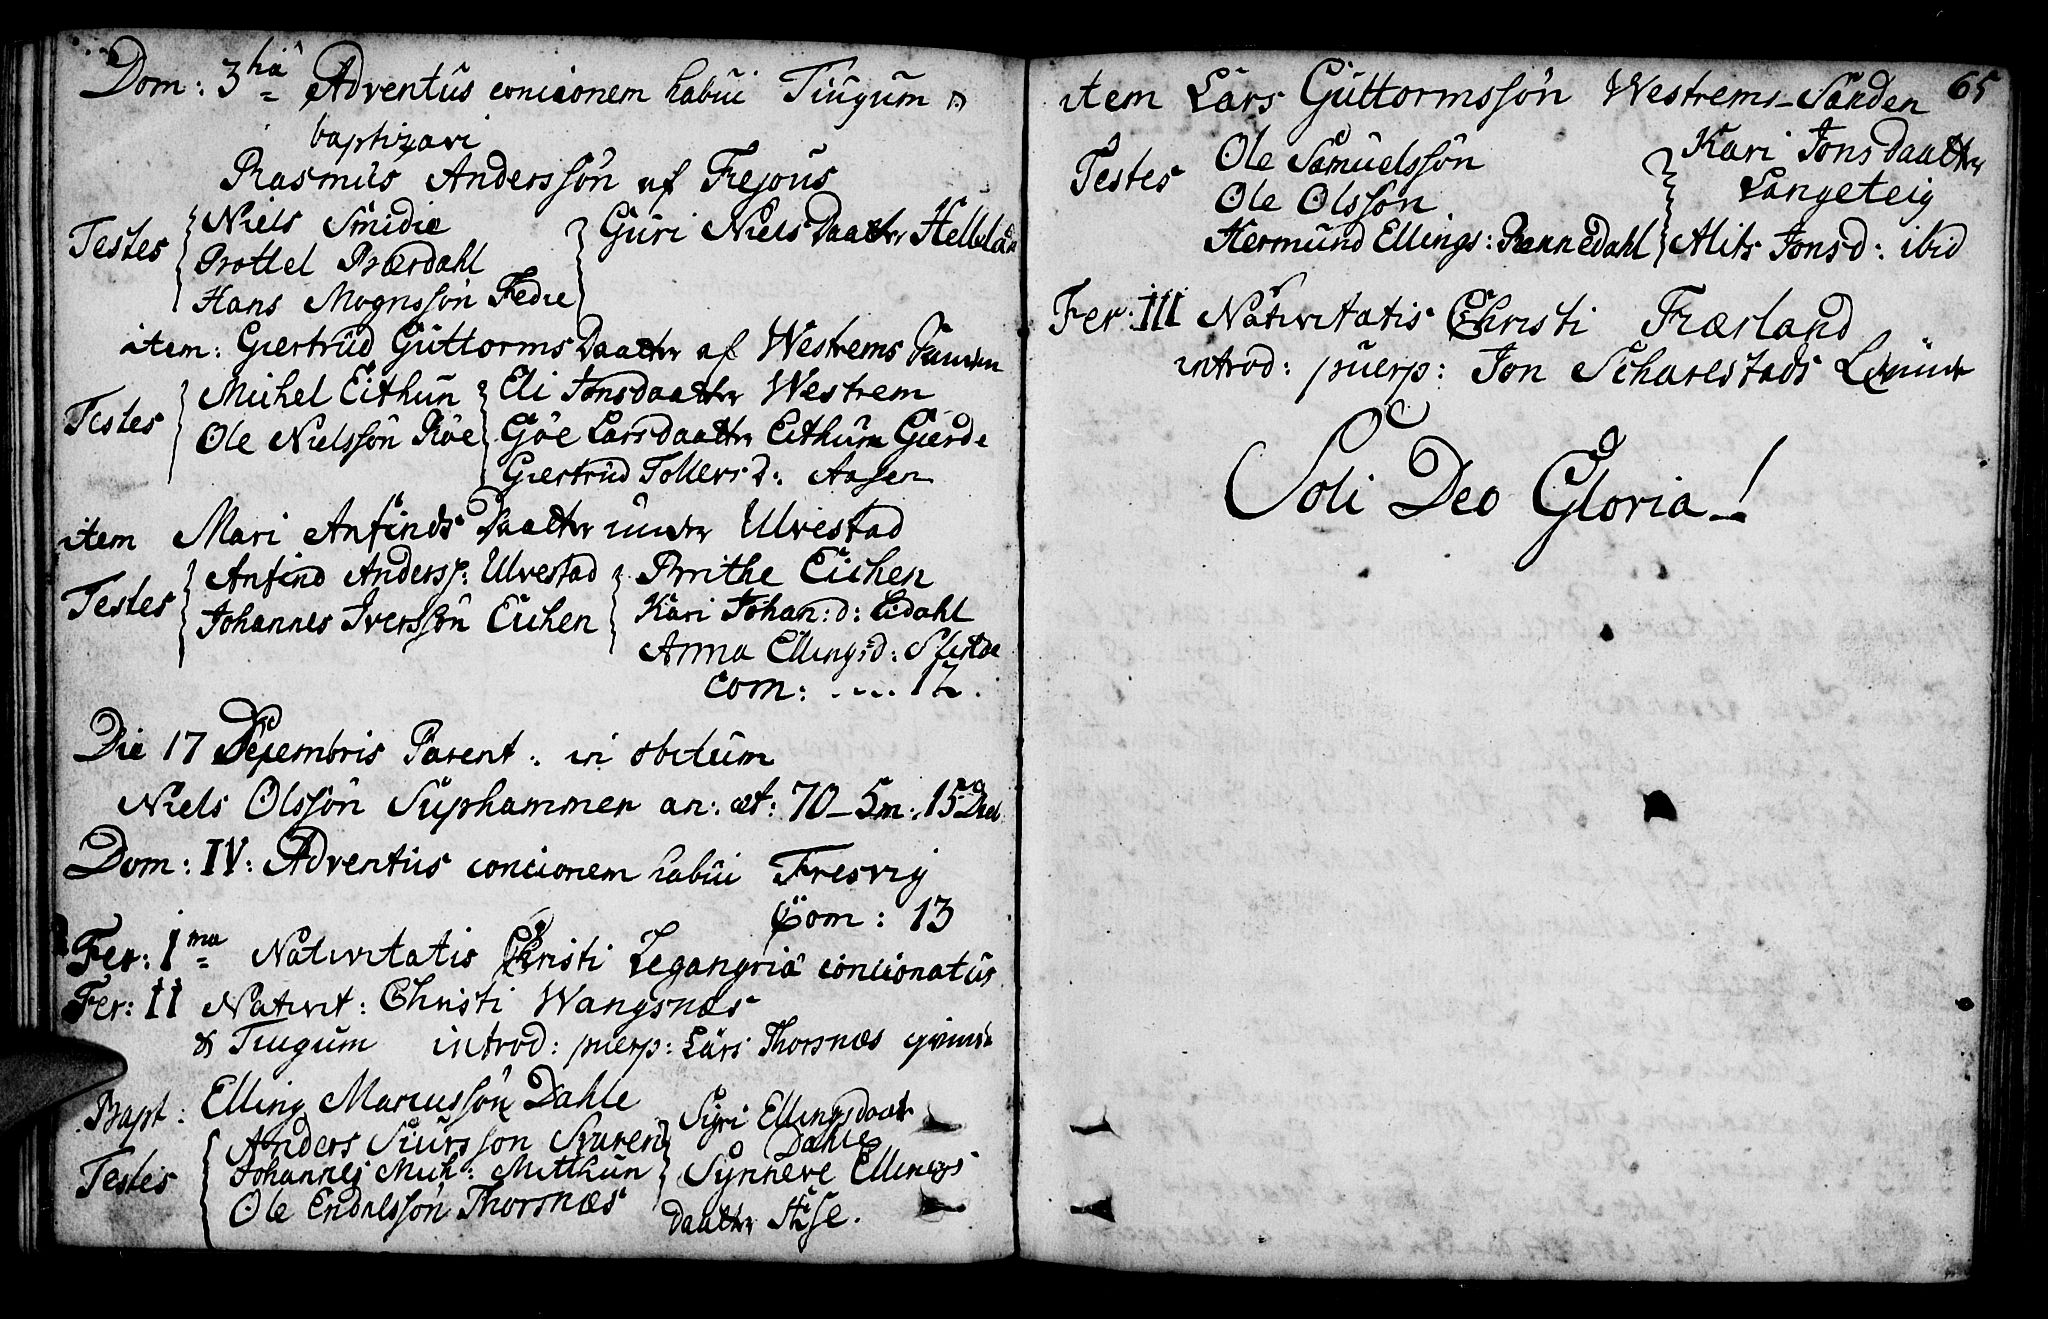 Dom: 3tiâ Adventûs concionem habûi Tiûgûm &
baptizavi
Rasmûs Anderssôn af Frejôus
Testes Niels Smidie
Brottel Bærdahl
Hans Mognssôn Fedie
Gûri Niels Daatter
item: Giertrûd Gûttorms Daatter af Westrems Sanden
Testes Michel Eithûn
Ole Nielssôn Röe
Eli Jonsdaatter Westrem
Gôe Larsdaatter Eithûm Gierde
Giertrûd Tollers D: Aasen
item Mari Anfinds Daatter under Ulvestad
Testes Anfind Anderss: Ulvestad
Johannes Iverssôn Eichen
Brithe Eichen
Kari Johan: d: Eidahl
Anna Ellingsd: Slinde
Com: .... 12.
Die 17 Decembris Parent: in obitûm
Niels Olssôn Sûphammer an: æt: 70 - 5m: 15 Died
Dom: IV: Adventûs concionem habûi Fresvig
Com: 13
Fer: 1ma Nativitatis Christi Legangriâ concionatûs
Fer: II Nativit: Christi Wangsnæs
& Tiugûm introd: puerp: Lars Thorsnæs qvinde
Bapt: Elling Marcussôn Dahle
Testes Anders Siûrssôn Svaren
Johannes Mich: Mitthûn
Ole Endnlssôn Thorsnæs
Sigri Ellingsdaatr
Dahle
Synneve Ellings
Daatter Hûse.
65
item Lars Gûttormssôn Westrems-Sanden
Testes Ole Samuelssôn
Ole Olssôn
Hermûnd Ellings: Rannedahl
Kari Jons Daatter
Langeteig
Alits Jonsd: ibid
Fer: III Nativitatis Christi Fiærland
introd: puerp: Jon Scharestads
Soli Deo Gloria!